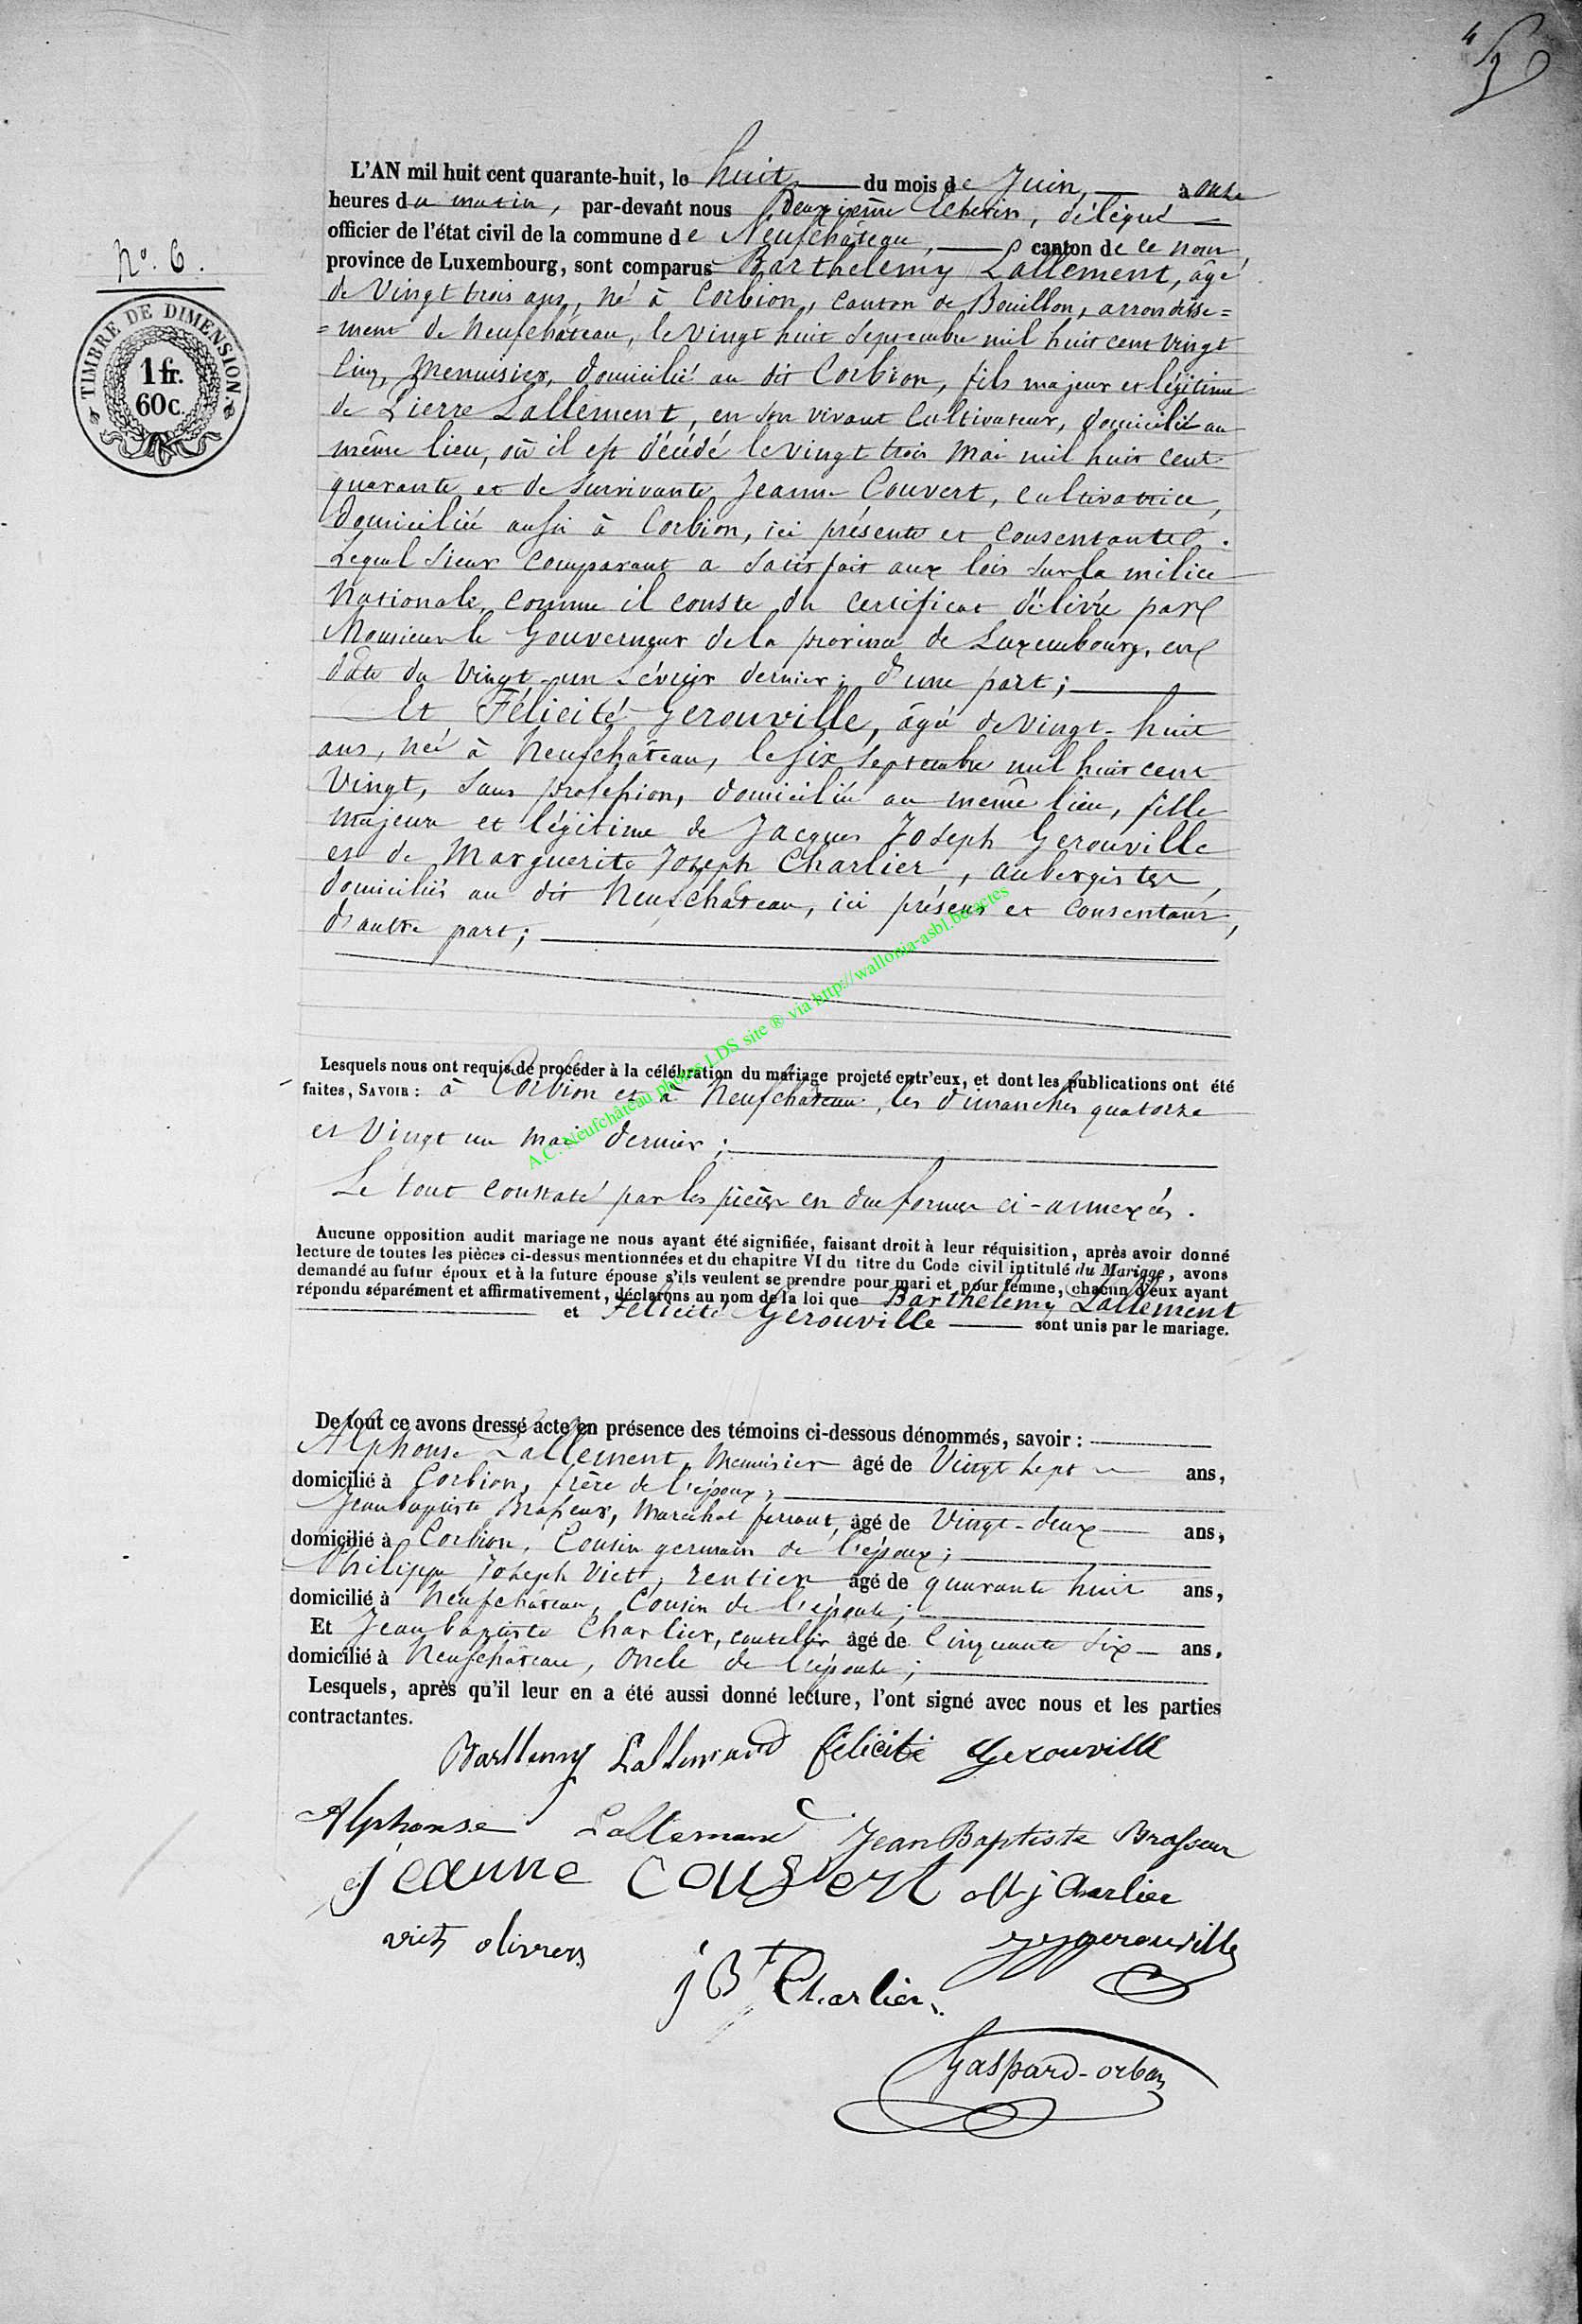 4
nº. 6.
TIMBRE DE DIMENSION.
1 fr.
60 c.
L'AN mil huit cent quarante-huit, le huit du mois de Juin, à onze
heures du matin, par-devant nous Deuxième Echevin, délégué
officier de l'état civil de la commune de Neufchâteau, canton de ce nom,
province de Luxembourg, sont comparus Barthelemy Lallement, âgé
de Vingt trois ans, né à Corbion, Canton de Bouillon, arrondisse=
=ment de Neufchâteau, le Vingt huit Septembre mil huit cent vingt
Cinq, Menuisier, domicilié au dit Corbion, fils majeur et légitime
de Pierre Lallement, en son vivant Cultivateur, domicilié au
même lieu, où il est décédé le vingt trois Mai mil huit cent
quarante et de survivante Jeanne Couvert, Cultivatrice,
domiciliée aussi à Corbion, ici présente et Consentante.
Lequel Sieur Comparant a satisfait aux lois sur la milice
Nationale, comme il conste du certificat délivré par
Monsieur le Gouverneur de la province de Luxembourg, en
date du Vingt-un Février dernier; d'une part;
Et Félicité Gerouville, âgée de vingt-huit
ans, née à Neufchâteau, le six Septembre mil huit cent
Vingt, sans profession, domiciliée au même lieu, fille
majeure et légitime de Jacques Joseph Gerouville
et de Marguerite Joseph Charlier, aubergistes,
domiciliés au dit Neufchâteau, ici présens et Consentans,
d'autre part;
A.C. Neufchâteau photos LDS site ® via http://wallonia-asbl.be/actes
Lesquels nous ont requis de procéder à la célébration du mariage projeté entr'eux, et dont les publications ont été
faites, SAVOIR : à Corbion et à Neufchâteau, les dimanches quatorze
et Vingt un Mai dernier;
Le tout constaté par les pièces en due forme ci-annexées.
Aucune opposition audit mariage ne nous ayant été signifiée, faisant droit à leur réquisition, après avoir donné
lecture de toutes les pièces ci-dessus mentionnées et du chapitre VI du titre du Code civil intitulé du Mariage, avons
demandé au futur époux et à la future épouse s'ils veulent se prendre pour mari et pour femme, chacun d'eux ayant
répondu séparément et affirmativement, déclarons au nom de la loi que Barthelemy Lallement
et Félicité Gerouville sont unis par le mariage.
De tout ce avons dressé acte en présence des témoins ci-dessous dénommés, savoir :
Alphonse Lallement, Menuisier âgé de Vingt sept ans,
domicilié à Corbion, frère de l'époux;
Jean baptiste Brasseur, Maréchal ferrant, âgé de Vingt-deux ans,
domicilié à Corbion, Cousin germain de l'époux;
Philippe Joseph Viet, rentier âgé de quarante huit ans,
domicilié à Neufchâteau, Cousin de l'épouse;
Et Jean baptiste Charlier, coutelier âgé de Cinquante six ans,
domicilié à Neufchâteau, Oncle de l'épouse;
Lesquels, après qu'il leur en a été aussi donné lecture, l'ont signé avec nous et les parties
contractantes.
Bartlemy Lallemand félicité Gerouville
Alphonse Lallemand Jean Baptiste Brasseur
jeanne Couvert j Charlier
gerouville
j Bte Charlier
Gaspard-orban